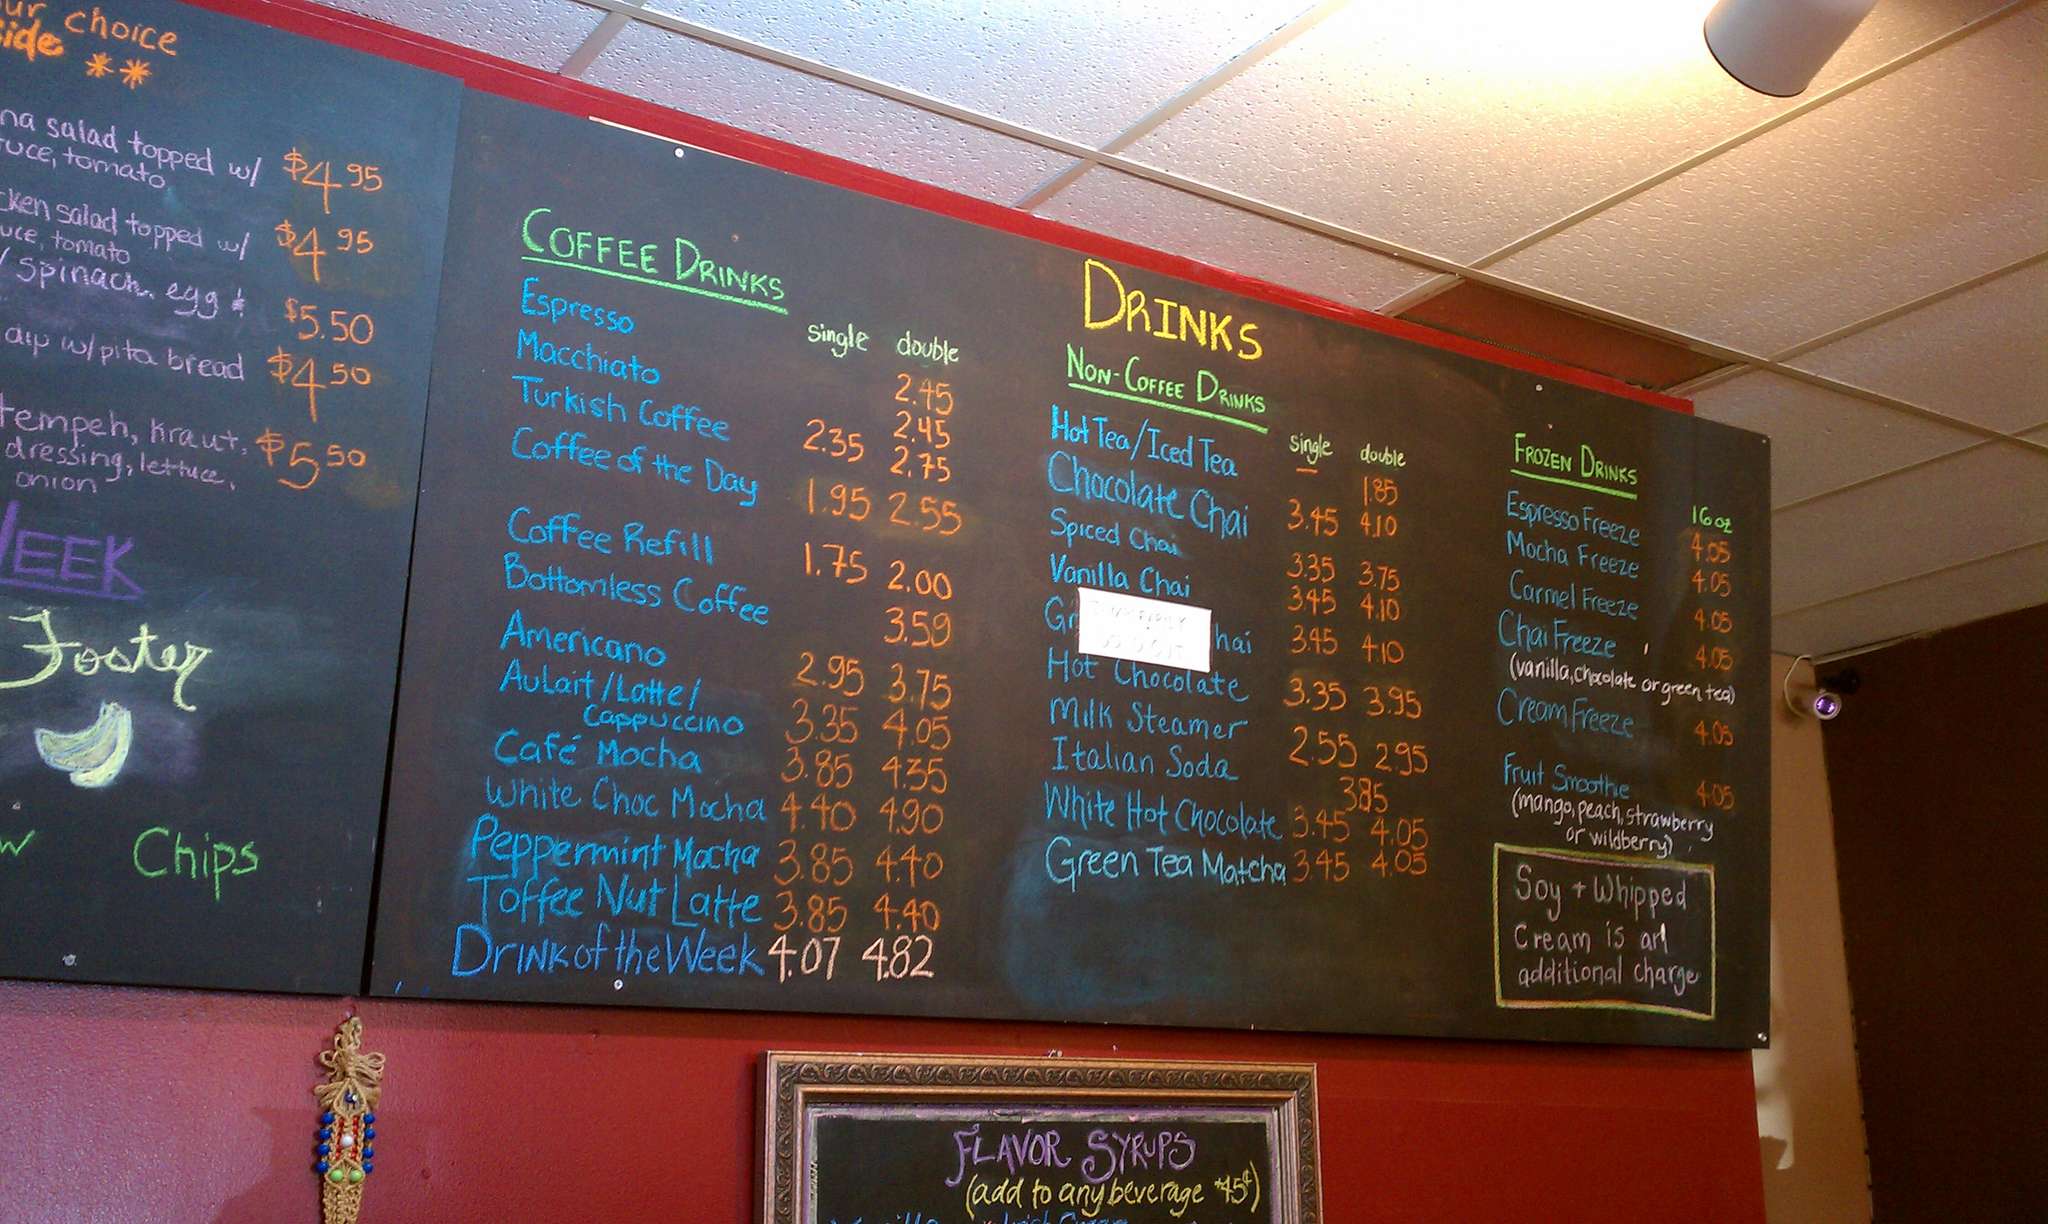 ur choice
side **
na salad topped w/ $4.95
tuce, tomato
cken salad topped w/ $4.95
uce, tomato
/ spinach, egg & $5.50
dip w/pita bread $4.50
tempeh, kraut, $5.50
dressing, lettuce,
onion
WEEK
Foster
w Chips
COFFEE DRINKS
single double
Espresso 2.45
Macchiato 2.45
Turkish Coffee 2.35 2.75
Coffee of the Day 1.95 2.55
Coffee Refill 1.75 2.00
Bottomless Coffee 3.59
Americano 2.95 3.75
AuLait/Latte/
Cappuccino 3.35 4.05
Café Mocha 3.85 4.35
White Choc Mocha 4.40 4.90
Peppermint Mocha 3.85 4.40
Toffee Nut Latte 3.85 4.40
Drink of the Week 4.07 4.82
DRINKS
NON-COFFEE DRINKS
single double
Hot Tea/Iced Tea 1.85
Chocolate Chai 3.45 4.10
Spiced Chai 3.35 3.75
Vanilla Chai 3.45 4.10
Gr hai 3.45 4.10
Hot Chocolate 3.35 3.95
Milk Steamer 2.55 2.95
Italian Soda 3.85
White Hot Chocolate 3.45 4.05
Green Tea Matcha 3.45 4.05
FROZEN DRINKS
16oz
Espresso Freeze 4.05
Mocha Freeze 4.05
Carmel Freeze 4.05
Chai Freeze 4.05
(vanilla, chocolate or green tea)
Cream Freeze 4.05
Fruit Smoothie 4.05
(mango, peach, strawberry
or wildberry)
Soy + Whipped
Cream is an
additional charge
FLAVOR SYRUPS
(add to any beverage 45¢)